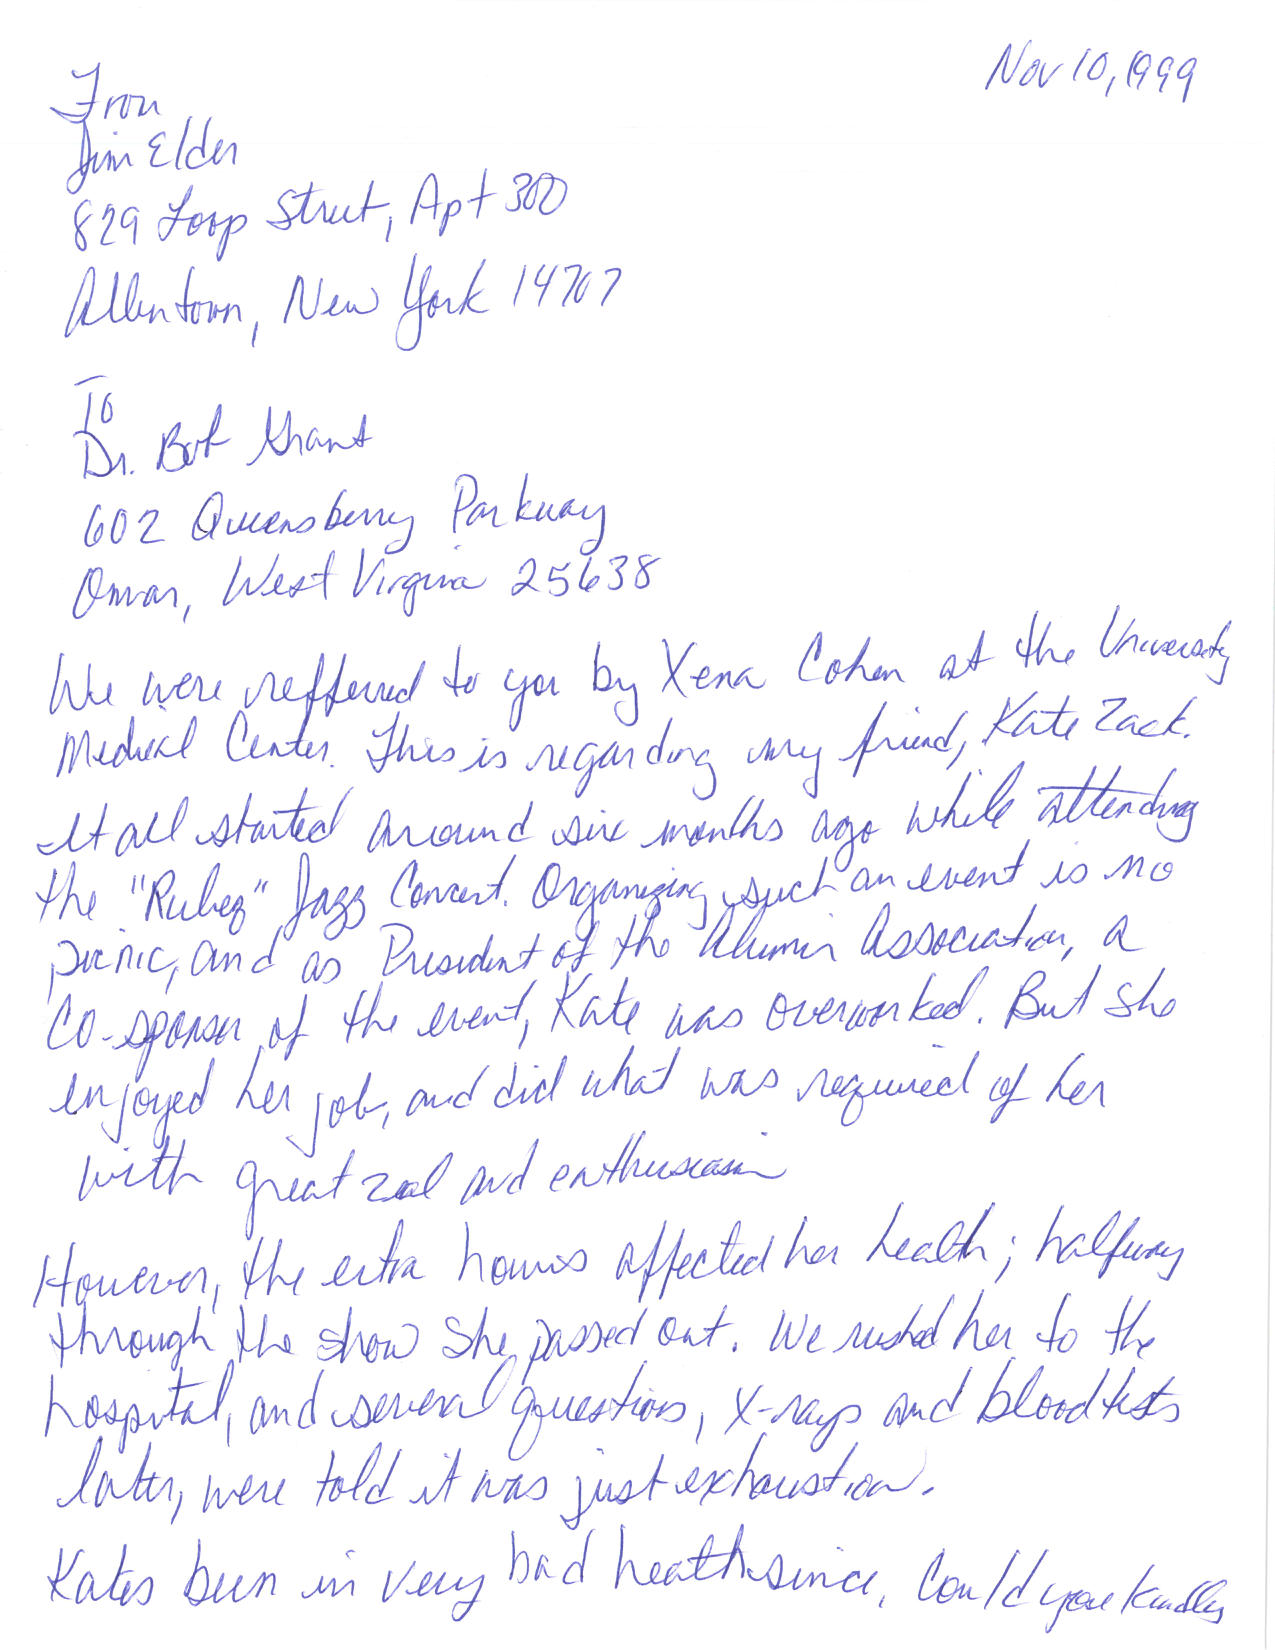 Nov 10, 1999
From
Jim Elder
829 Loop Street, Apt 300
Allentown, New York 14707
To
Dr. Bob Grant
602 Queensberry Parkway
Omar, West Virginia 25638
We were reffered to you by Xena Cohen at the University
Medical Center. This is regarding my friend, Kate Zack.
It all started around six months ago while attending
the "Rubeq" Jazz Concert. Organizing such an event is no
picnic, and as President of the Alumni Association, a
co-sponsor of the event, Kate was overworked. But she
enjoyed her job, and did what was required of her
with great zeal and enthusiasm
However, the extra hours affected her health; halfway
through the show she passed out. We rushed her to the
hospital, and several questions, x-rays and blood tests
later, were told it was just exhaustion.
Kates been in very bad health since. Could you kindly